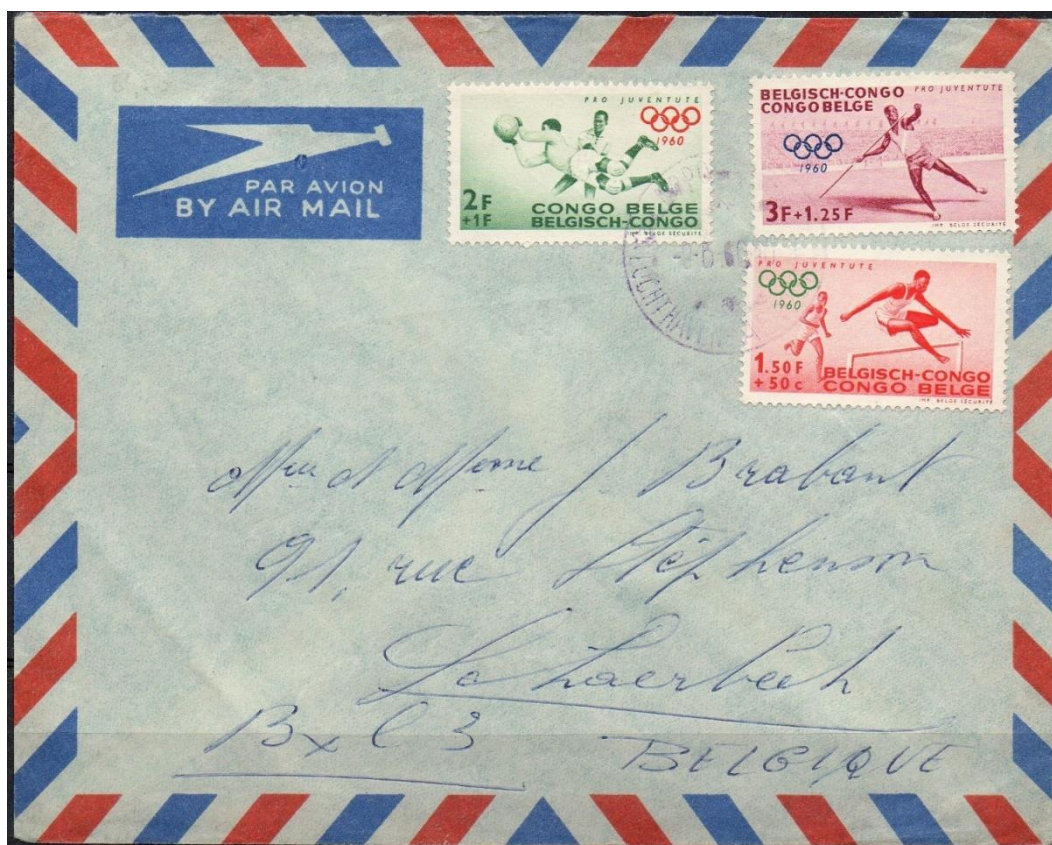 PAR AVION
BY AIR MAIL
PRO JUVENTUTE
1960
2F
+1F
CONGO BELGE
BELGISCH-CONGO
IMP. BELGE SÉCURITÉ
BELGISCH-CONGO
CONGO BELGE
PRO JUVENTUTE
1960
3F+1.25F
IMP. BELGE SÉCURITÉ
PRO JUVENTUTE
1960
1.50F
+50c
BELGISCH-CONGO
CONGO BELGE
IMP. BELGE SÉCURITÉ
LUCHTHAVEN
et Mme J Brabant
91, rue Stéphenson
Schaerbeek
Bxl 3
BELGIQUE